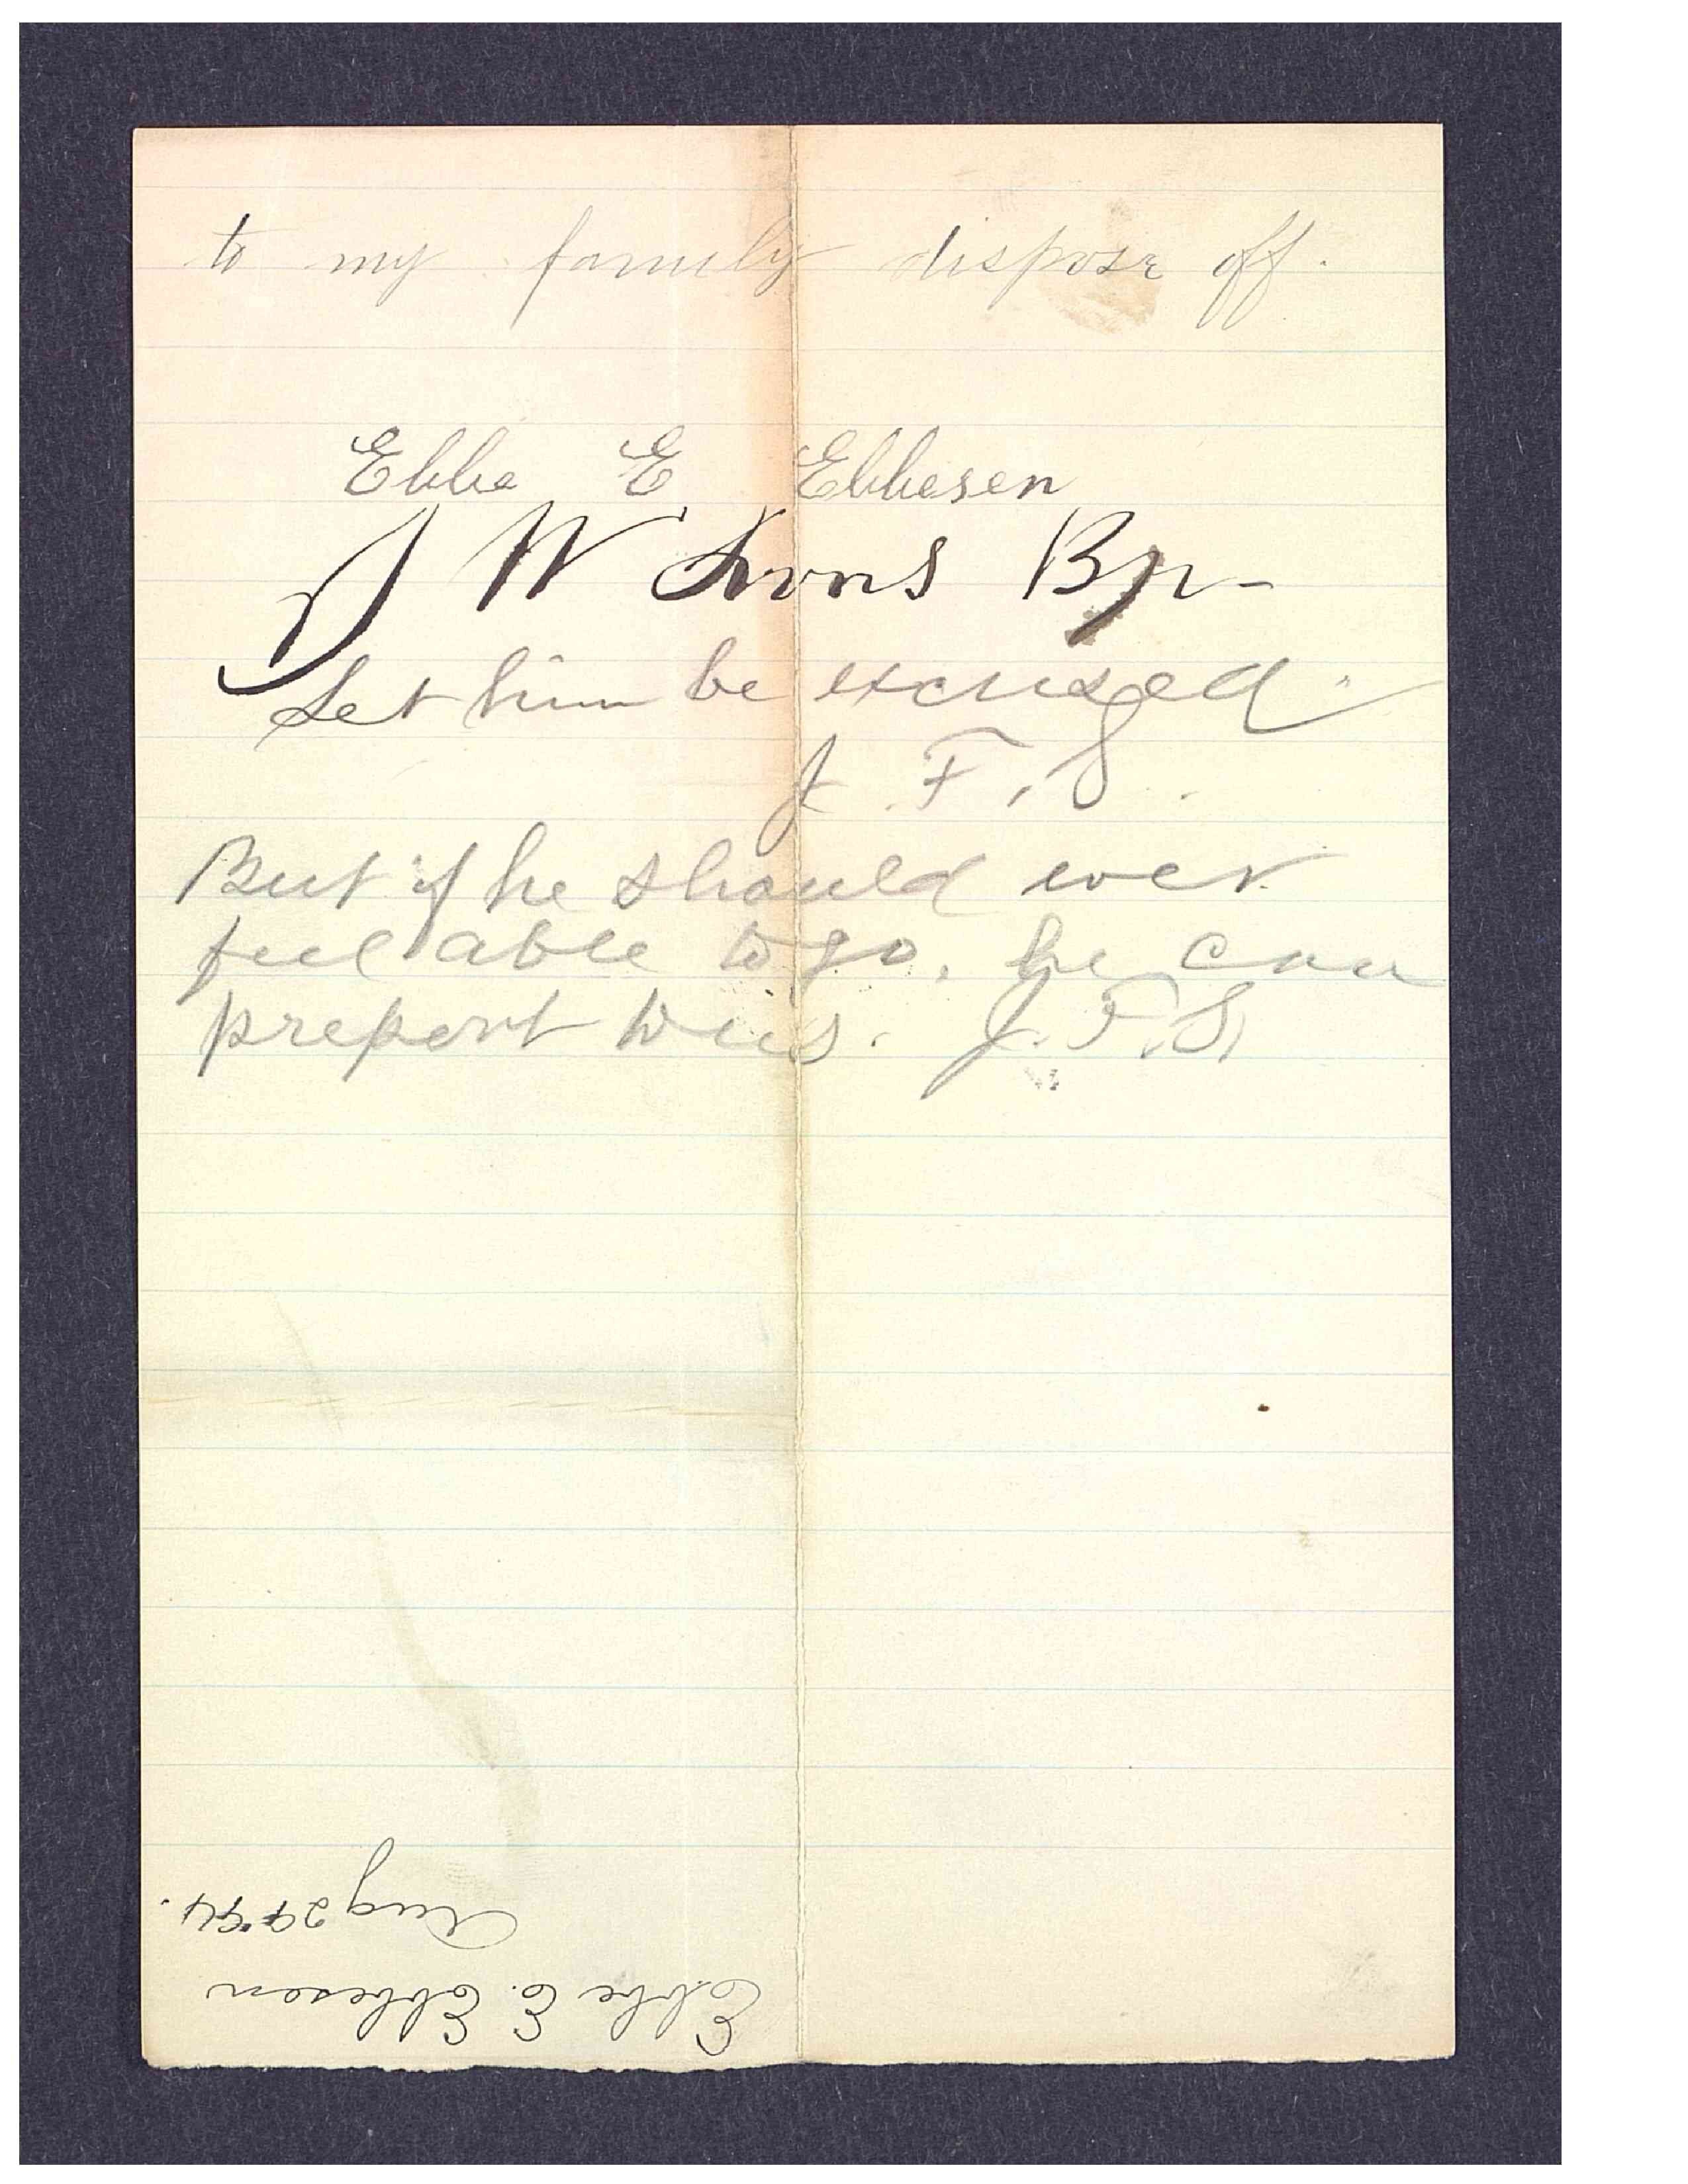 to my family dispose off.
Ebbe E Ebbesen
J W Irons Bp-
Let him be excused.
J. F. S.
But if he should ever
feel able to go, he can
preport to us. J. F. S.
Ebbe E. Ebbesen
Aug 29 94.